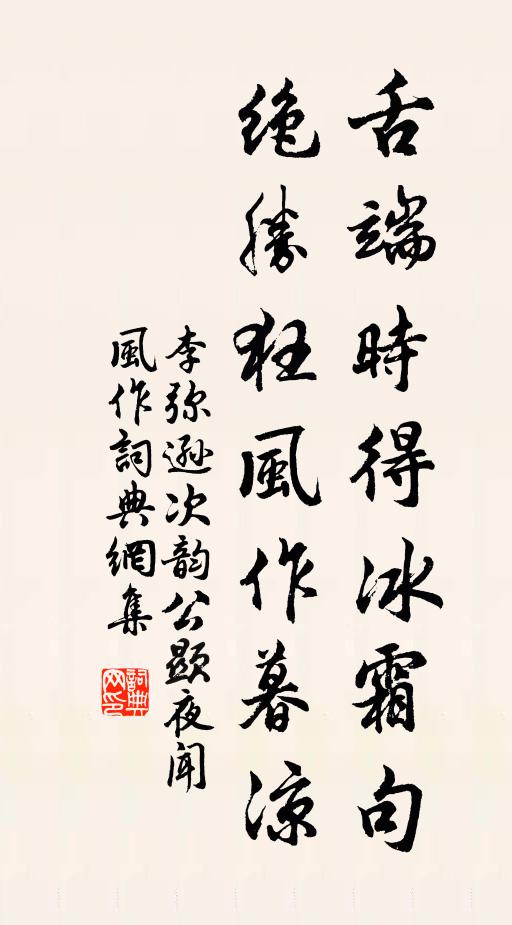 舌端時得冰霜句
絶勝狂風作暮涼
李弥遜次韵公顯夜聞
風作詞典網集
詞典网印